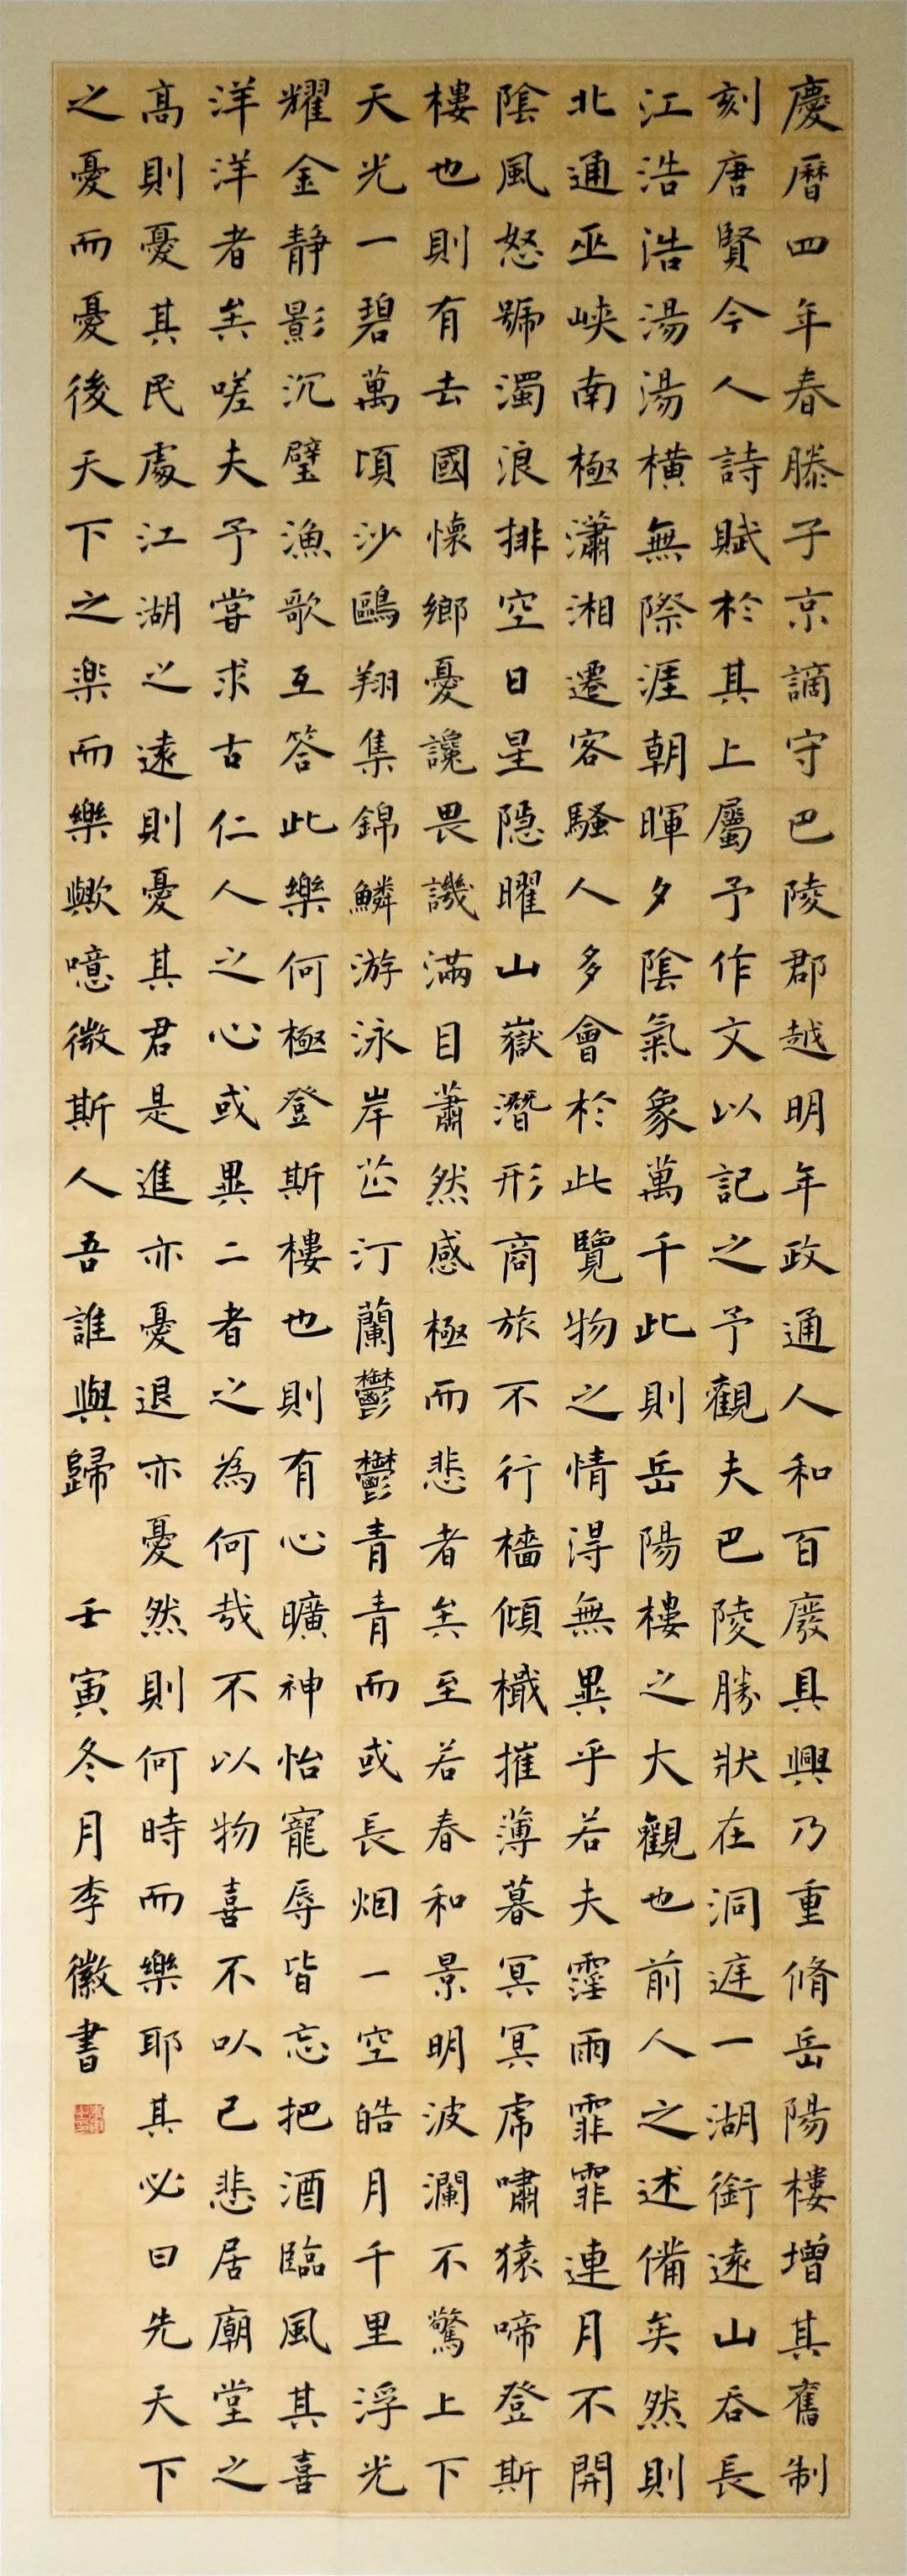 慶曆四年春滕子京謫守巴陵郡越明年政通人和百廢具興乃重脩岳陽樓增其舊制
刻唐賢今人詩賦於其上屬予作文以記之予觀夫巴陵勝狀在洞庭一湖銜遠山吞長
江浩浩湯湯橫無際涯朝暉夕陰氣象萬千此則岳陽樓之大觀也前人之述備矣然則
北通巫峽南極瀟湘遷客騷人多會於此覽物之情得無異乎若夫霪雨霏霏連月不開
陰風怒號濁浪排空日星隱曜山嶽潛形商旅不行檣傾檝摧薄暮冥冥虎嘯猿啼登斯
樓也則有去國懷鄉憂讒畏譏滿目蕭然感極而悲者矣至若春和景明波瀾不驚上下
天光一碧萬頃沙鷗翔集錦鱗游泳岸芷汀蘭鬱鬱青青而或長烟一空皓月千里浮光
耀金靜影沉璧漁歌互答此樂何極登斯樓也則有心曠神怡寵辱皆忘把酒臨風其喜
洋洋者矣嗟夫予嘗求古仁人之心或異二者之為何哉不以物喜不以己悲居廟堂之
高則憂其民處江湖之遠則憂其君是進亦憂退亦憂然則何時而樂耶其必曰先天下
之憂而憂後天下之楽而樂歟噫微斯人吾誰與歸 壬寅冬月李徽書